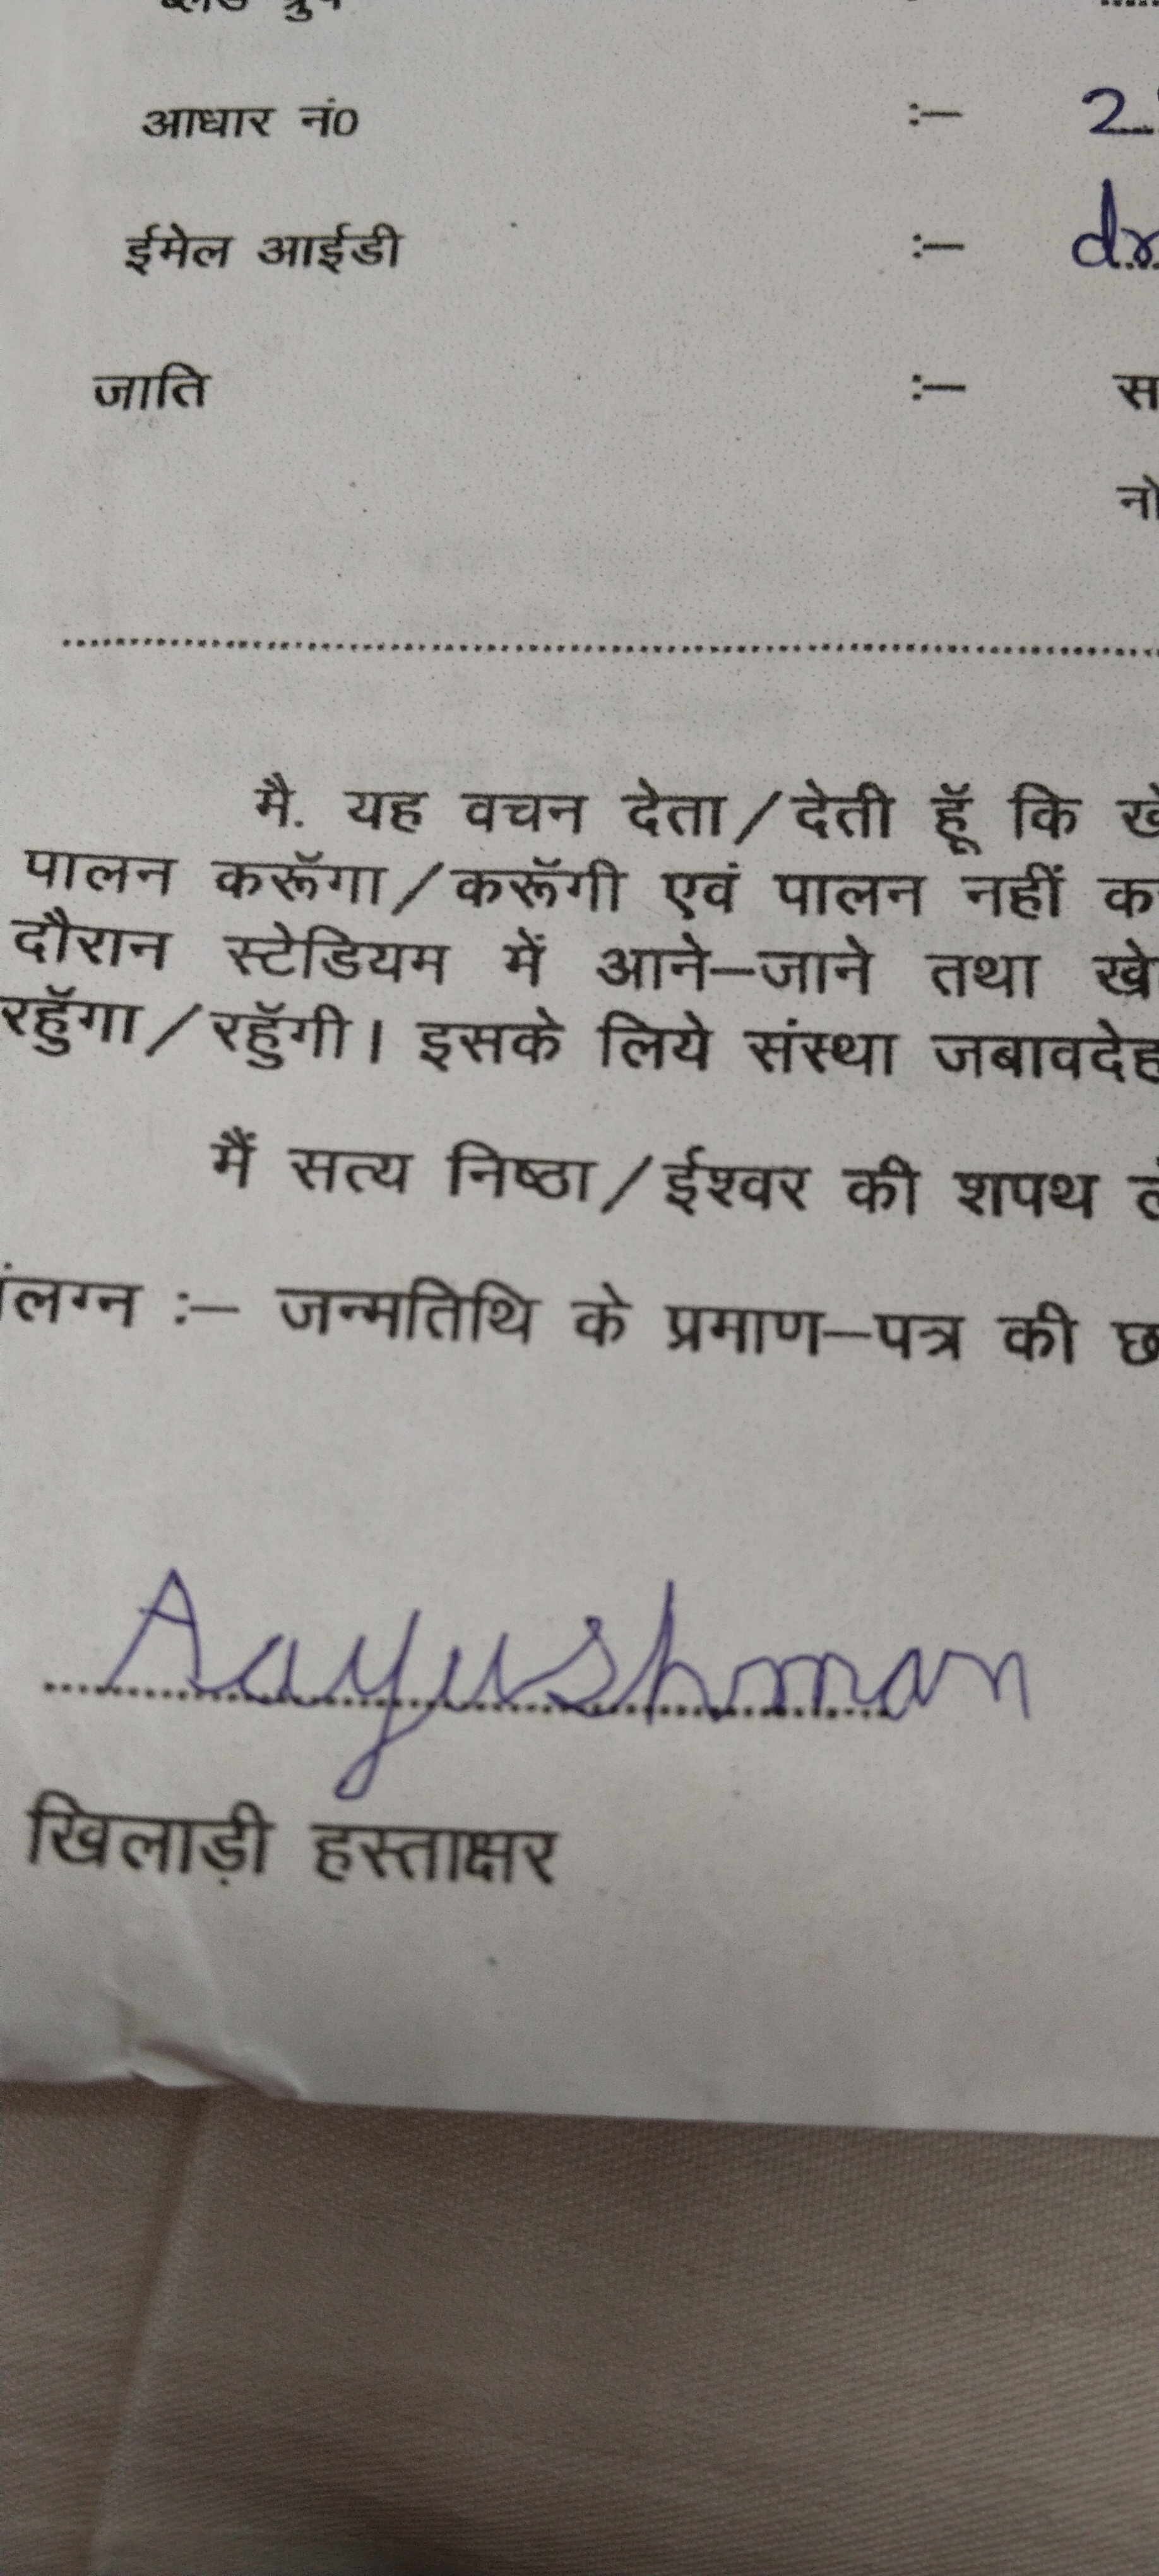 ब्लड ग्रुप
आधार नं0 :— 2
ईमेल आईडी :— dr
जाति :— स
नो
मै. यह वचन देता/देती हूॅ कि खे
पालन करूॅगा/करूॅगी एवं पालन नहीं क
दौरान स्टेडियम में आने—जाने तथा खे
रहुॅगा/रहुॅगी। इसके लिये संस्था जबावदेह
मैं सत्य निष्ठा/ईश्वर की शपथ
संलग्न :— जन्मतिथि के प्रमाण—पत्र की छ
Aayushman
खिलाड़ी हस्ताक्षर